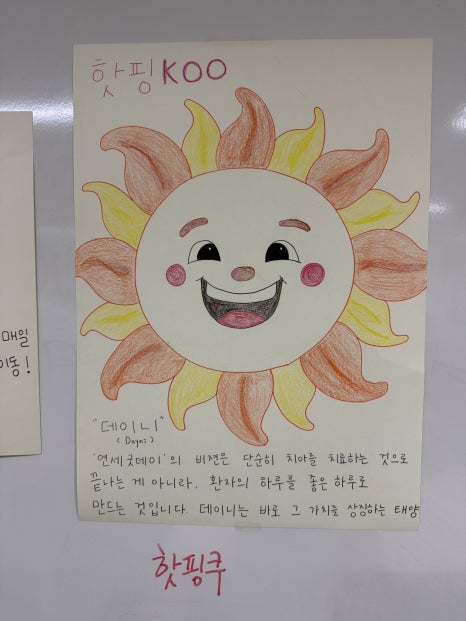 핫핑KOO
매일
이동!
"데이니"
(Dayni)
'연세굿데이'의 비젼은 단순히 치아를 치료하는 것으로
끝나는 게 아니라, 환자의 하루를 좋은 하루로
만드는 것입니다. 데이니는 바로 그 가치를 상징하는 태양
핫핑쿠